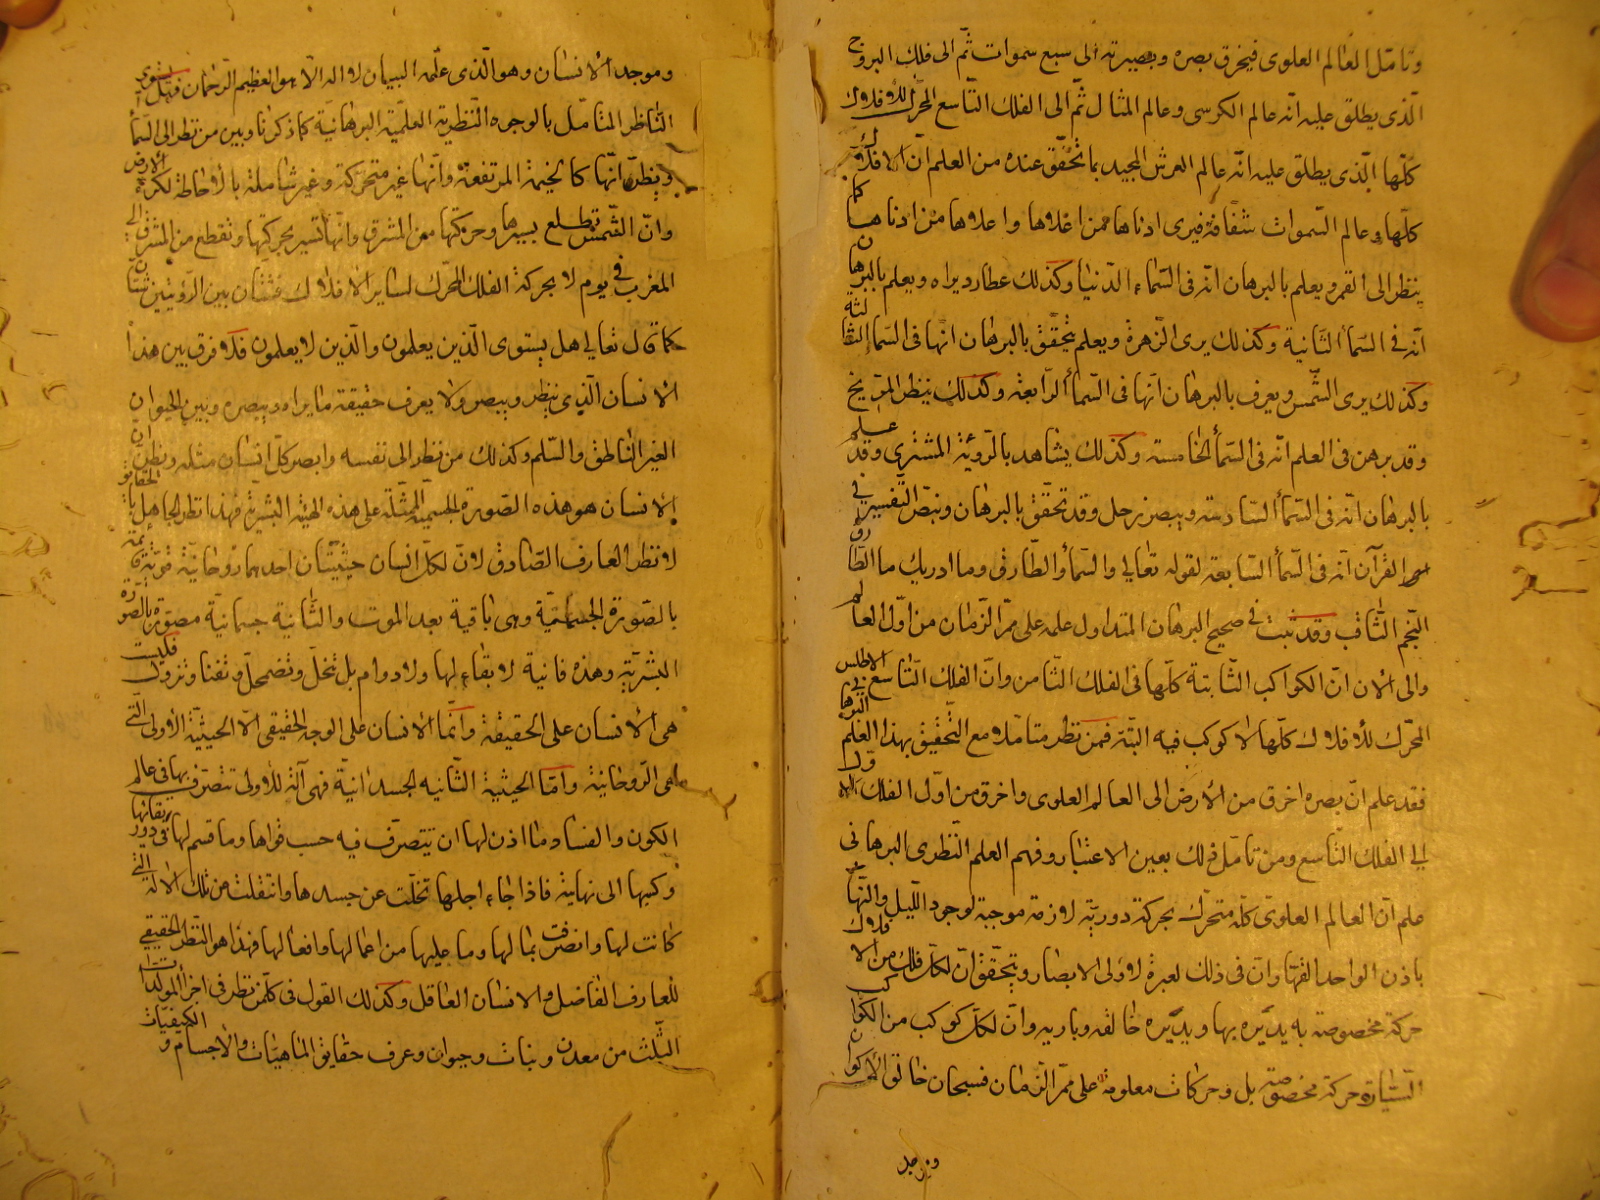 وتأمّل العالم العلوى فيخرق بصره وبصيرته الى سبع سموات ثمّ الى فلك البروج
الّذى يطلق عليه انّه عالم الكرسى وعالم المثال ثمّ الى الفلك التّاسع المحرّك للأفلاك
كلّها الّذى يطلق عليه انّه عالم العرش المجيد بما تحقّق عنده من العلم انّ الافلاك
كلّها وعالم السّموات شفّافة فيرى ادناها ممن اعلاها واعلاها من ادناها كما
ينظر الى القمر ويعلم بالبرهان انّه فى السّماء الدّنيا وكذلك عطارد يراه ويعلم بالبرهان
انّه فى السّمأ الثّانية وكذلك يرى الزّهرة ويعلم بتحقّق بالبرهان انّها فى السّمأ الثّالثة
وكذلك يرى الشّمس ويعرف بالبرهان انّها فى السّمأ الرّابعة وكذلك ينظر المرّيخ
وقد برهن فى العلم انّه فى السّمأ الخامسة وكذلك يشاهد بالرّؤية المشترى وقد علم
بالبرهان انّه فى السّمأ السّادسة ويبصر زحل وقد تحقّق بالبرهان وبنصّ التّفسير فى
القرآن انّه فى السّمأ السّابعة لقوله تعالى والسّمأ والطّارق وما ادريك ما الطّارق
النّجم الثّاقب وقد ثبت فى صحيح البرهان المتداول علمه على ممرّ الزّمان من اوّل العالم
والى الأن انّ الكواكب الثّابتة كلّها فى الفلك الثّامن وانّ الفلك التّاسع الاطلس
المحرّك للأفلاك كلّها لا كوكب فيه البتّة فمن نظر متأمّلا مع التّحقيق بهذا العلم البرهانى
فقد علم انّ بصره اخرق من الأرض الى العالم العلوى واخرق من اوّل الفلك الاوّل
الى الفلك التّاسع ومن تأمّل ذلك بعين الاعتبار وفهم العلم النّظرى البرهانى
علم انّ العالم العلوى كلّه متحرّك بحركة دوريّة لازمة موجبة لوجود اللّيل والنّهار
باذن الواحد القهّار وانّ فى ذلك لعبرة لاولى الابصار ويتحقّق انّ لكلّ فلك من الافلاك
حركة مخصوصة به يديره بها ويدبّره خالقه وباريه وانّ لكلّ كوكب من الكواكب
السّيّارة حركة مخصوصة بل وحركات معلومة على ممرّ الزّمان فسبحان خالق الأكوان
وموجد الأنسان وهو الّذى علّمه البيان لا اله الّا هو العظيم الرّحمان فهل يستوى
النّاظر المتأمّل بالوجوه النّظريّة العلميّة البرهانيّة كما ذكرنا وبين من نظر الى السّمأ
ويظنّ انّها كالخيمة المرتفعة وانّها غير متحرّكة وغير شاملة بالأحاطة لكرة الأرض
وانّ الشّمس تطلع بسيرها وحركتها من المشرق وانّها تسير بحركتها وتقطع من المشرق الى
المغرب فى يوم لا بحركة الفلك المحرّك لساير الافلاك فشتّان بين الرّؤيتين شتّان
كما قال تعالى هل يستوى الّذين يعلمون والّذين لا يعلمون فلا فرق بين هذا
الانسان الّذى ينظر ويبصر ولا يعرف حقيقة ما يراه ويبصره وبين الحيوان
الغير النّاطق والسّلم وكذلك من نظر الى نفسه وابصر كلّ انسان مثله ويظنّ انّ
الانسان هو هذه الصّورة الجسميّة الممثّلة على هذه الهيئة البشريّة فهذا نظر الجاهل بالحقايق
لا نظر العارف الصّادق لانّ لكلّ انسان حيثيّتان احدهما روحانيّة قويّة قايمة
بالصّورة الجسمانيّة وهى باقية بعد الموت والثّانية جسمانيّة مصوّرة بالصّورة
البشريّة وهذه فانية لا بقاء لها ولا دوام بل تنحلّ وتضمحلّ وتفنا وتزول فليست
هى الانسان على الحقيقة وانّما الانسان على الوجه الحقيقى الّا الحيثيّة الأولى الّتى
هى الرّوحانيّة وامّا الحيثية الثّانيه الجسدانيّة فهى آلة للأولى تتصرّف بها فى عالم
الكون والفساد ما اذن لها ان تتصرّف فيه حسب قواها وما قسم لها فى دور بقائها
وكبها الى نهايتة فاذا جاء اجلها تخلّت عن جسدها وانتقلت من تلك الالة الّتى
كانت لها وانصرفت بما لها وما عليها من اعمالها وافعالها فهذا هو النّظر الحقيقى
للعارف الفاضل والانسان العاقل وكذلك القول فى كلّ من نظر فى اجزأ المولّدات
الثّلث من معدن ونبات وحيوان وعرف حقايق الماهيّات والاجسام و الكيفيّات